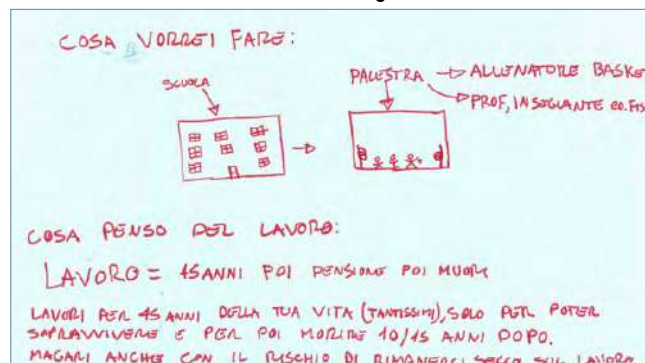 COSA VORREI FARE:
SCUOLA
PALESTRA → ALLENATORE BASKE
→ PROF, INSEGNANTE ED. FIS
COSA PENSO DEL LAVORO:
LAVORO = 45 ANNI POI PENSIONE POI MUORI
LAVORI PER 45 ANNI DELLA TUA VITA (TANTISSIMI), SOLO PER POTER
SOPRAVVIVERE E PER POI MORIRE 10/15 ANNI DOPO.
MAGARI ANCHE CON IL RISCHIO DI RIMANERCI SECCO SUL LAVORO